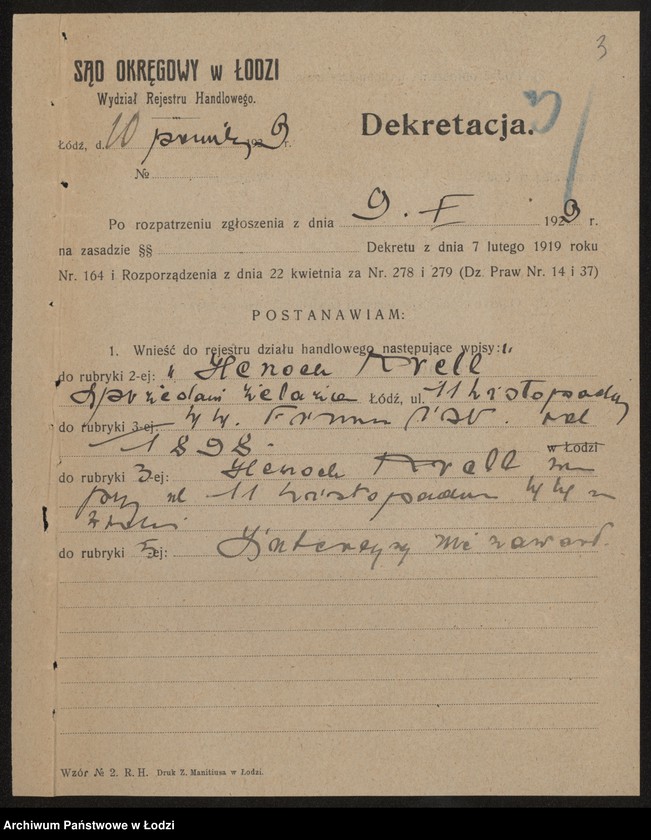 3
SĄD OKRĘGOWY w ŁODZI
Wydział Rejestru Handlowego.
Dekretacja.
Łódź, d. 10 192 9 r.
№
Po rozpatrzeniu zgłoszenia z dnia 9. 192 9 r.
na zasadzie §§ Dekretu z dnia 7 lutego 1919 roku
Nr. 164 i Rozporządzenia z dnia 22 kwietnia za Nr. 278 i 279 (Dz. Praw. Nr. 14 i 37)
POSTANAWIAM:
1. Wnieść do rejestru działu handlowego następujące wpisy:
do rubryki 2-ej: „Henoch Krell"
Sprzedaż żelaza Łódź, ul. 11 Listopada
do rubryki 3-ej 44. Firma istn. od
1898. w Łodzi
do rubryki 3-ej: Henoch Krell zam
przy ul 11 Listopada 44 w
Łodzi
do rubryki 5-ej: Intercyzy nie zawarł.
Wzór № 2. R. H. Druk Z. Manitiusa w Łodzi.
Archiwum Państwowe w Łodzi